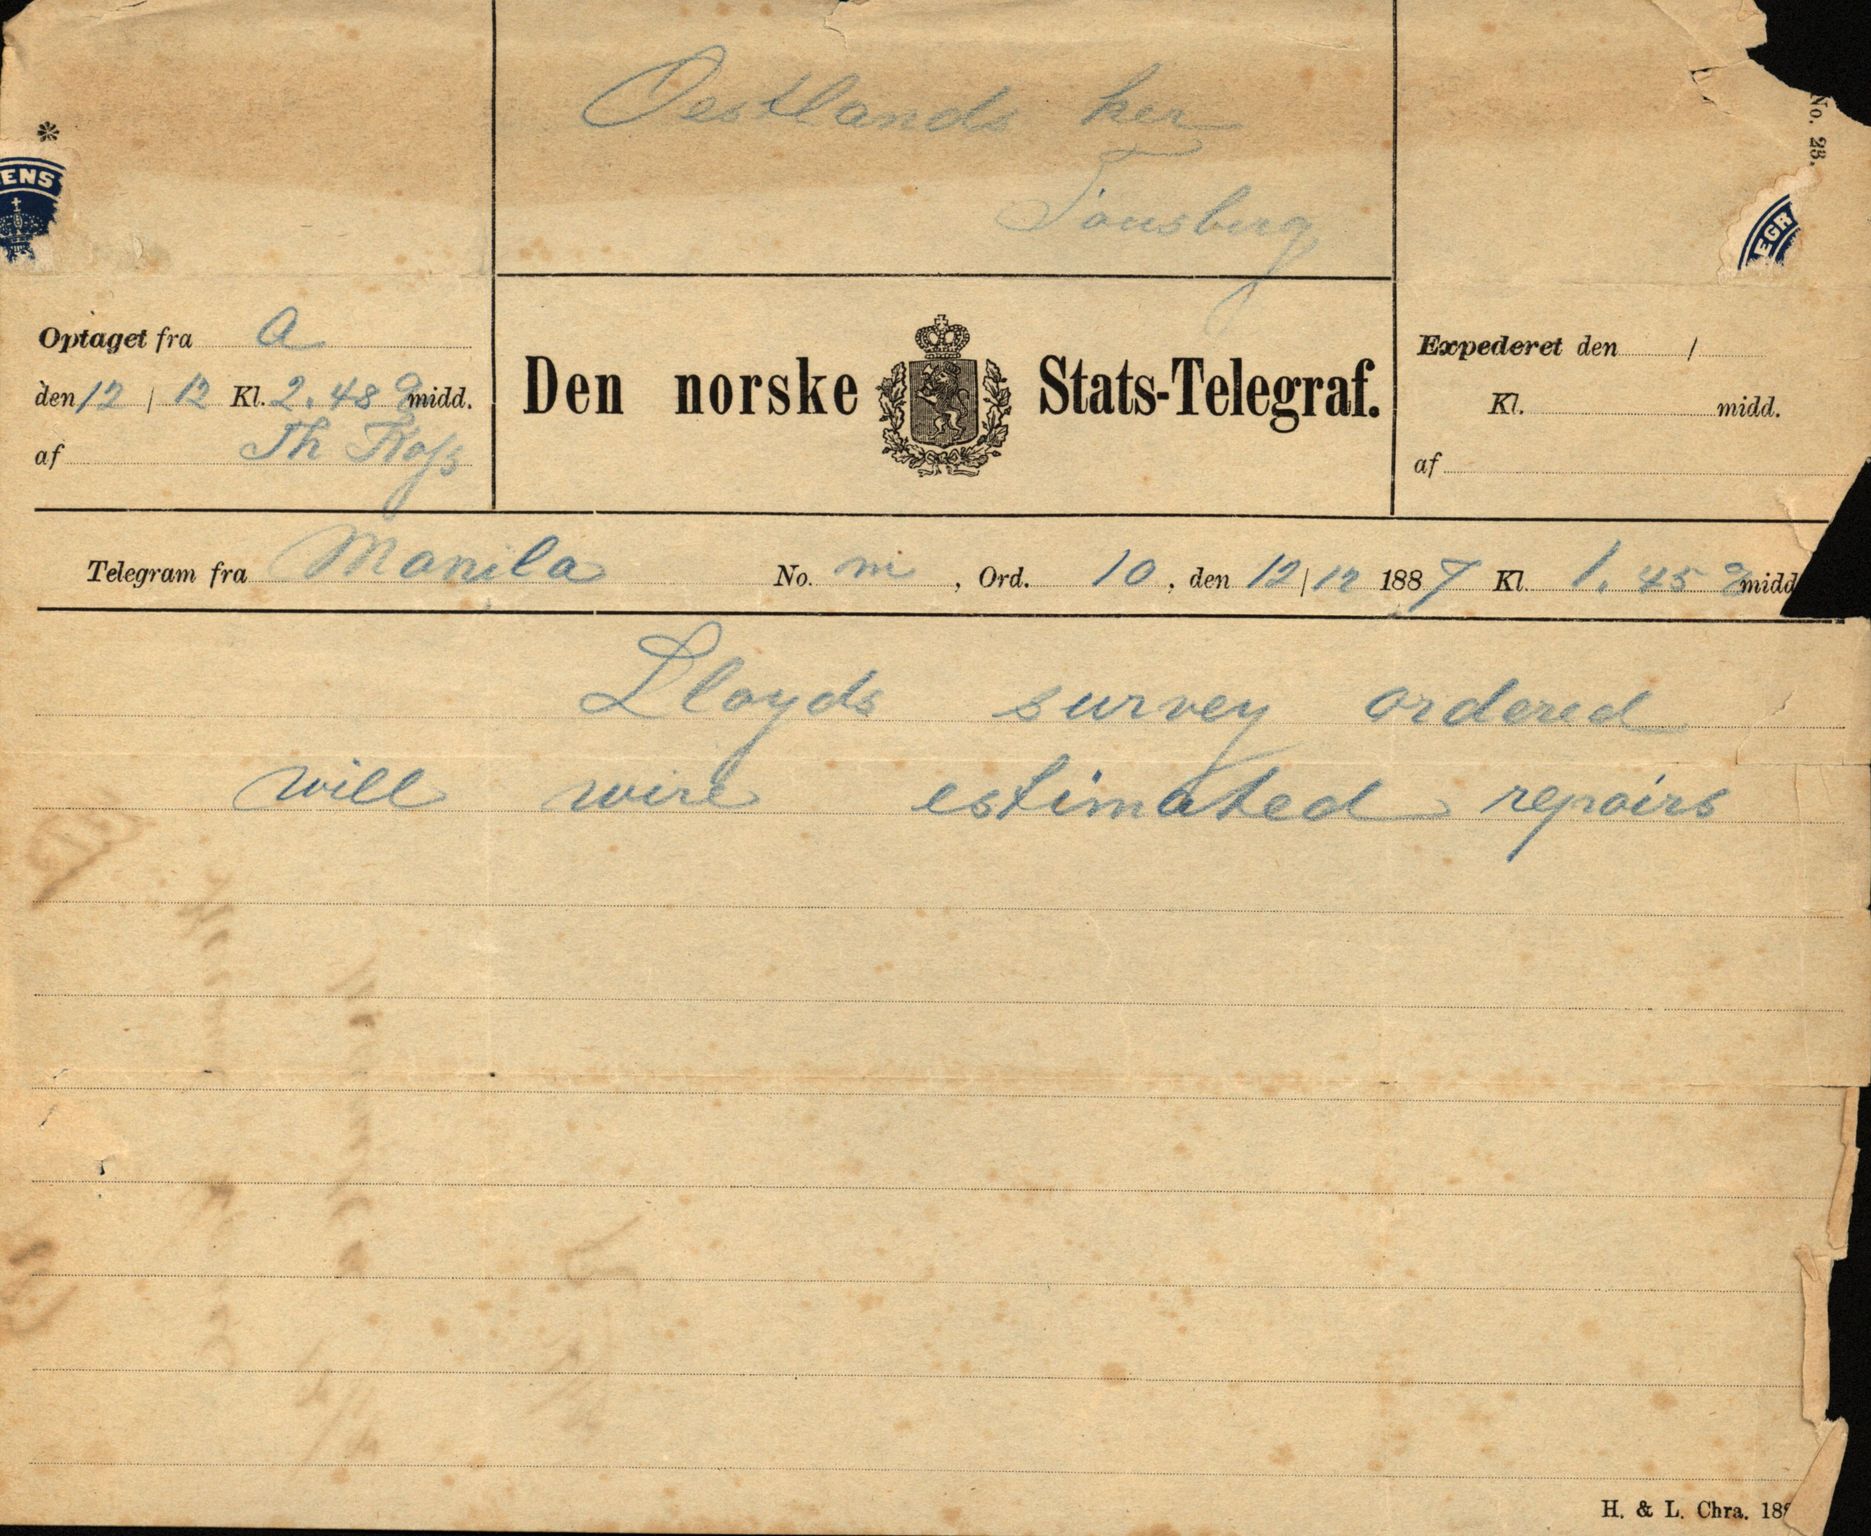 Oestlands her
Tönsberg
No. 23.
ENS
EGR
Optaget fra a
den 12 / 12 Kl. 2.48 e midd.
af Th Foss
Den norske Stats-Telegraf.
Expederet den /
Kl. midd.
af
Telegram fra Manila No. m, Ord. 10, den 12/12 1887 Kl. 1.45 e midd
Lloyds survey ordered
will wire estimated repairs
H. & L. Chra. 188